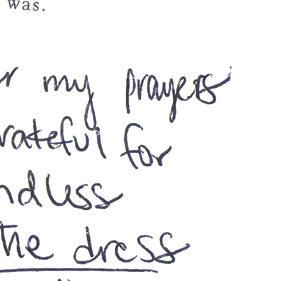 was.
my prayers
rateful for
ndless
the dress